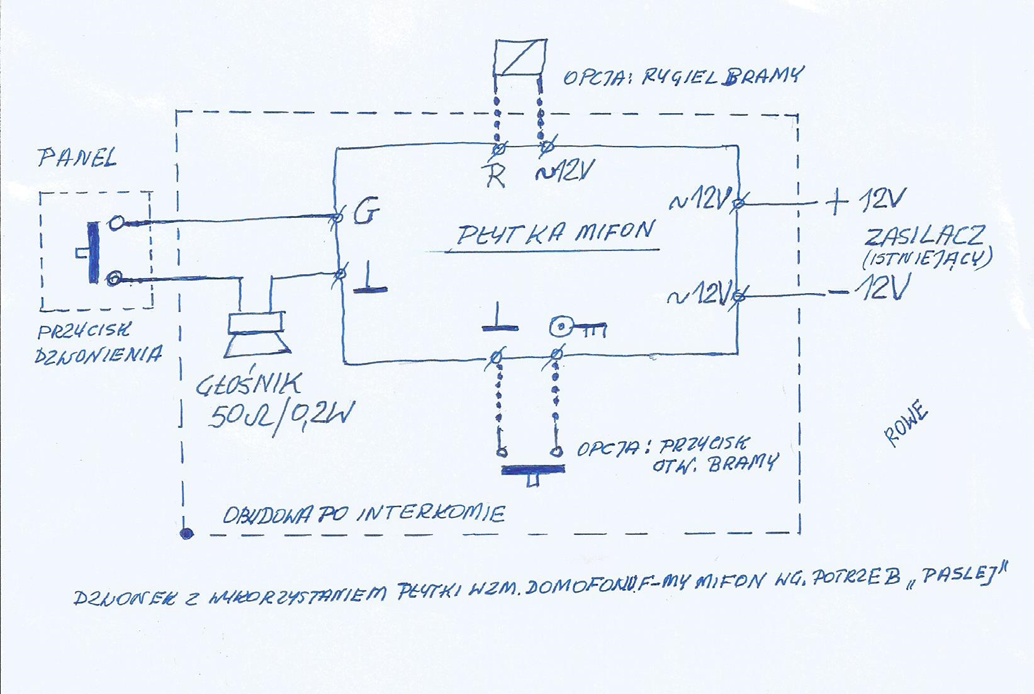 OPCJA: RYGIEL BRAMY
PANEL
R ~12V
G
~12V
+ 12V
PŁYTKA MIFON
ZASILACZ
(ISTNIEJĄCY)
~12V
- 12V
PRZYCISK
DZWONIENIA
GŁOŚNIK
50Ω/0,2W
ROWE
OPCJA: PRZYCISK
OTW. BRAMY
OBUDOWA PO INTERKOMIE
DZWONEK Z WYKORZYSTANIEM PŁYTKI WZM. DOMOFONU F-MY MIFON WG. POTRZEB „PASLEJ"